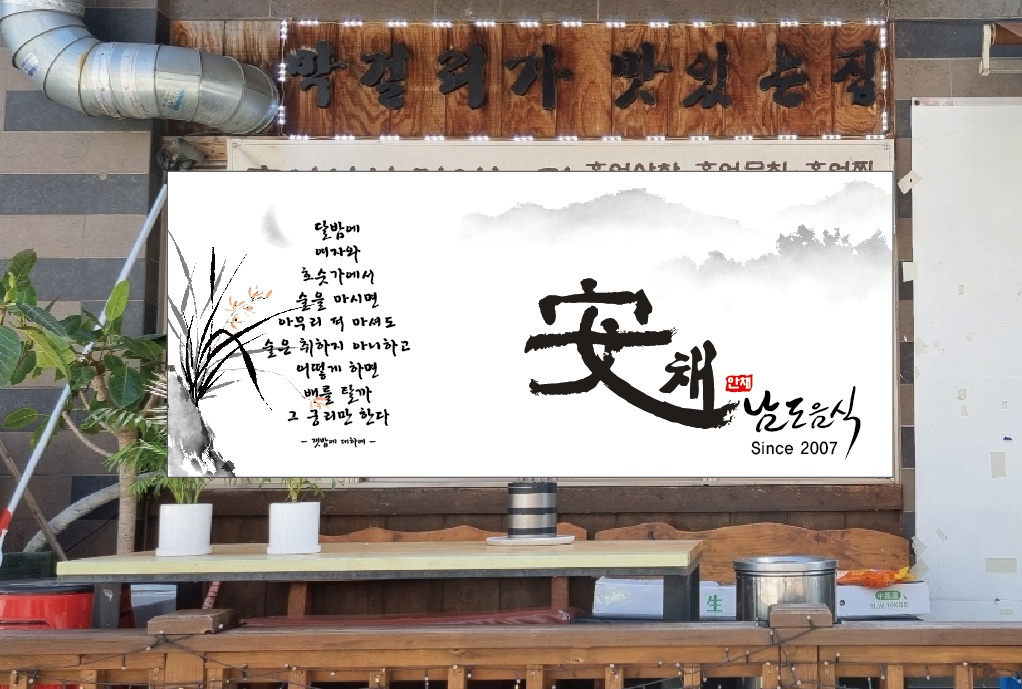 막걸리가 맛있는집
홍어삼합 홍어무침 홍어찜
달밤에
여자와
호숫가에서
술을 마시면
아무리 퍼 마셔도
술은 취하지 아니하고
어떻게 하면
배를 탈까
그 궁리만 한다
- 갯밤에 대하여 -
安채
안채
남도음식
Since 2007
生
中國產
N.W.10KGS